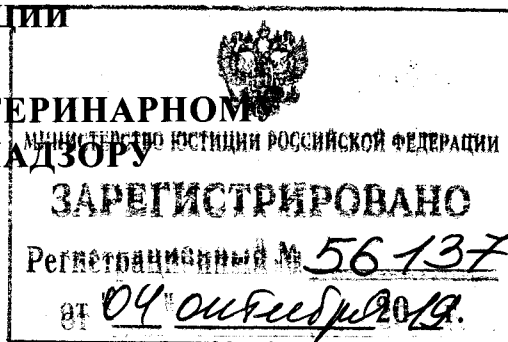 ЦИИ
ТЕРИНАРНОМУ
МИНИСТЕРСТВО ЮСТИЦИИ РОССИЙСКОЙ ФЕДЕРАЦИИ
АДЗОРУ
ЗАРЕГИСТРИРОВАНО
Регистрационный № 56137
от "04" октября 2019.